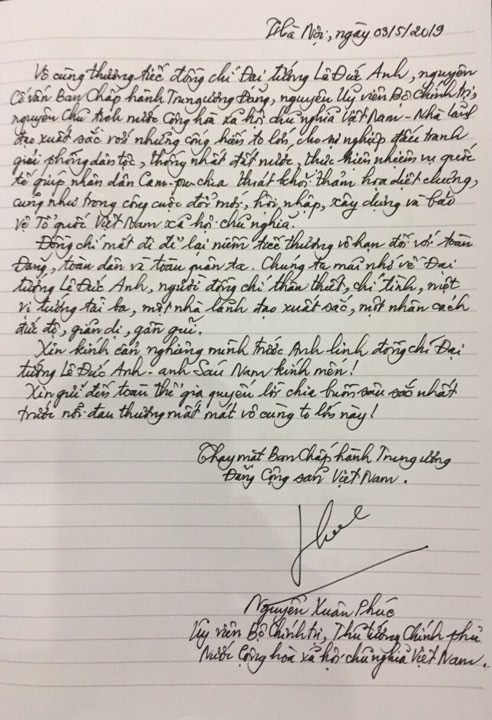 Hà Nội, ngày 03/5/2019
Vô cùng thương tiếc đồng chí Đại tướng Lê Đức Anh, nguyên
Cố vấn Ban Chấp hành Trung ương Đảng, nguyên Ủy viên Bộ Chính trị,
nguyên Chủ tịch nước Cộng hòa xã hội chủ nghĩa Việt Nam - Nhà lãnh
đạo xuất sắc với những cống hiến to lớn, cho sự nghiệp đấu tranh
giải phóng dân tộc, thống nhất đất nước, thực hiện nhiệm vụ quốc
tế giúp nhân dân Cam-pu-chia thoát khỏi thảm họa diệt chủng,
cũng như trong công cuộc đổi mới, hội nhập, xây dựng và bảo
vệ Tổ quốc Việt Nam xã hội chủ nghĩa.
Đồng chí mất đi để lại niềm tiếc thương vô hạn đối với toàn
Đảng, toàn dân và toàn quân ta. Chúng ta mãi nhớ về Đại
tướng Lê Đức Anh, người đồng chí thân thiết, chí tình, một
vị tướng tài ba, một nhà lãnh đạo xuất sắc, một nhân cách
đức độ, giản dị, gần gũi.
Xin kính cẩn nghiêng mình trước Anh linh đồng chí Đại
tướng Lê Đức Anh - anh Sáu Nam kính mến!
Xin gửi đến toàn thể gia quyến lời chia buồn sâu sắc nhất
trước nỗi đau thương mất mát vô cùng to lớn này!
Thay mặt Ban Chấp hành Trung ương
Đảng Cộng sản Việt Nam.
Nguyễn Xuân Phúc
Ủy viên Bộ Chính trị, Thủ tướng Chính phủ
Nước Cộng hoà xã hội chủ nghĩa Việt Nam.